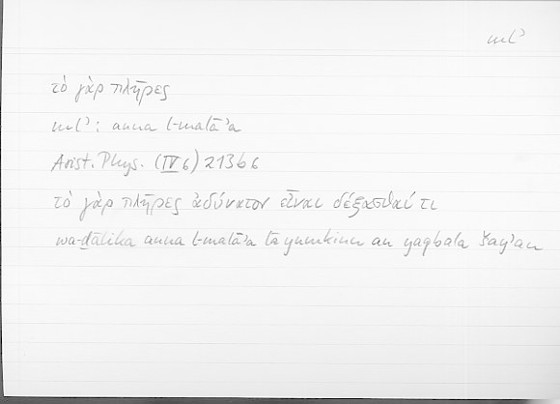 mlʾ
τὸ γὰρ πλῆρες
mlʾ: anna l-malāʾa
Arist. Phys. (IV 6) 213b6
τὸ γὰρ πλῆρες ἀδύνατον εἶναι δέξασθαί τι
wa-ḏālika anna l-malāʾa lā yumkinu an yaqbala šayʾan